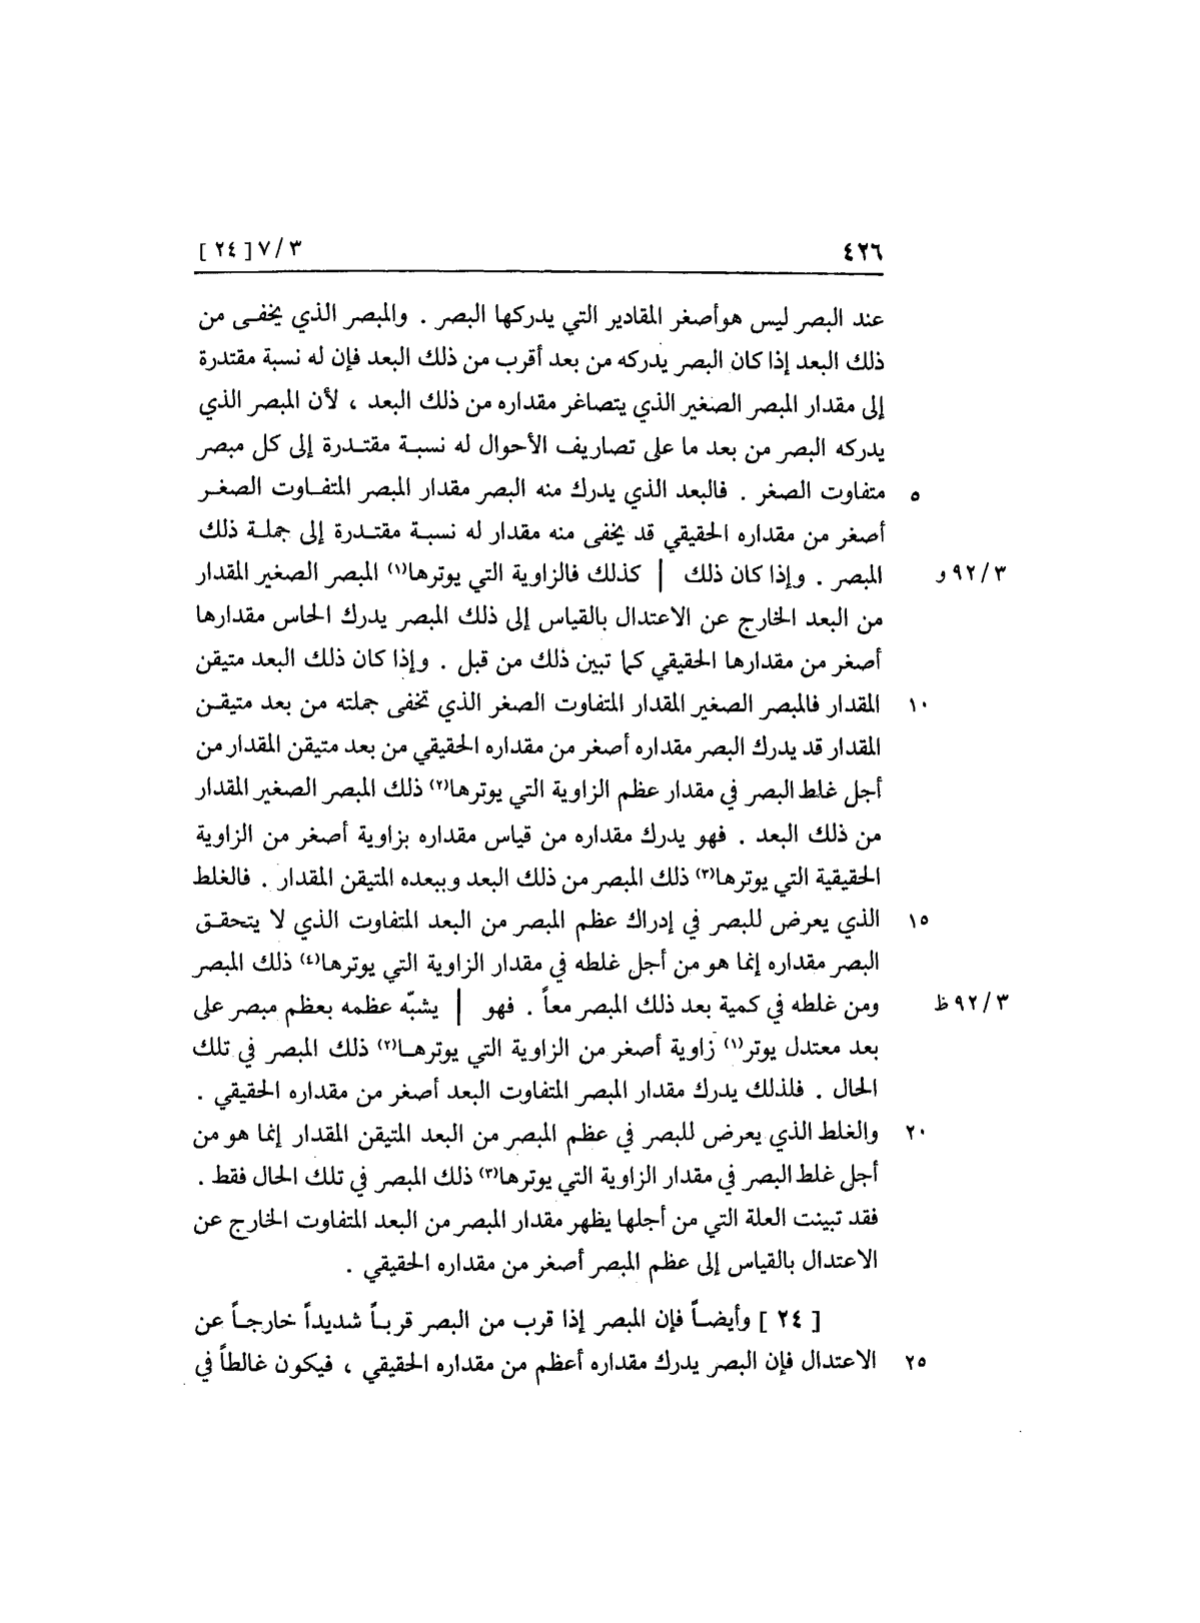 ٤٢٦ ٧/٣ [ ٢٤ ]
عند البصر ليس هوأصغر المقادير التي يدركها البصر . والمبصر الذي يخفى من
ذلك البعد إذا كان البصر يدركه من بعد أقرب من ذلك البعد فإن له نسبة مقتدرة
إلى مقدار المبصر الصغير الذي يتصاغر مقداره من ذلك البعد ، لأن المبصر الذي
يدركه البصر من بعد ما على تصاريف الأحوال له نسبة مقتدرة إلى كل مبصر
٥ متفاوت الصغر . فالبعد الذي يدرك منه البصر مقدار المبصر المتفاوت الصغر
أصغر من مقداره الحقيقي قد يخفى منه مقدار له نسبة مقتدرة إلى جملة ذلك
٩٢/٣ و المبصر . وإذا كان ذلك | كذلك فالزاوية التي يوترها(١) المبصر الصغير المقدار
من البعد الخارج عن الاعتدال بالقياس إلى ذلك المبصر يدرك الحاس مقدارها
أصغر من مقدارها الحقيقي كما تبين ذلك من قبل . وإذا كان ذلك البعد متيقن
١٠ المقدار فالمبصر الصغير المقدار المتفاوت الصغر الذي تخفى جملته من بعد متيقن
المقدار قد يدرك البصر مقداره أصغر من مقداره الحقيقي من بعد متيقن المقدار من
أجل غلط البصر في مقدار عظم الزاوية التي يوترها(٢) ذلك المبصر الصغير المقدار
من ذلك البعد . فهو يدرك مقداره من قياس مقداره بزاوية أصغر من الزاوية
الحقيقية التي يوترها(٣) ذلك المبصر من ذلك البعد وببعده المتيقن المقدار . فالغلط
١٥ الذي يعرض للبصر في إدراك عظم المبصر من البعد المتفاوت الذي لا يتحقق
البصر مقداره إنما هو من أجل غلطه في مقدار الزاوية التي يوترها(٤) ذلك المبصر
٩٢/٣ ظ ومن غلطه في كمية بعد ذلك المبصر معاً . فهو | يشبّه عظمه بعظم مبصر على
بعد معتدل يوتر(١) زاوية أصغر من الزاوية التي يوترها(٢) ذلك المبصر في تلك
الحال . فلذلك يدرك مقدار المبصر المتفاوت البعد أصغر من مقداره الحقيقي .
٢٠ والغلط الذي يعرض للبصر في عظم المبصر من البعد المتيقن المقدار إنما هو من
أجل غلط البصر في مقدار الزاوية التي يوترها(٣) ذلك المبصر في تلك الحال فقط .
فقد تبينت العلة التي من أجلها يظهر مقدار المبصر من البعد المتفاوت الخارج عن
الاعتدال بالقياس إلى عظم المبصر أصغر من مقداره الحقيقي .
[ ٢٤ ] وأيضاً فإن المبصر إذا قرب من البصر قرباً شديداً خارجاً عن
٢٥ الاعتدال فإن البصر يدرك مقداره أعظم من مقداره الحقيقي ، فيكون غالطاً في